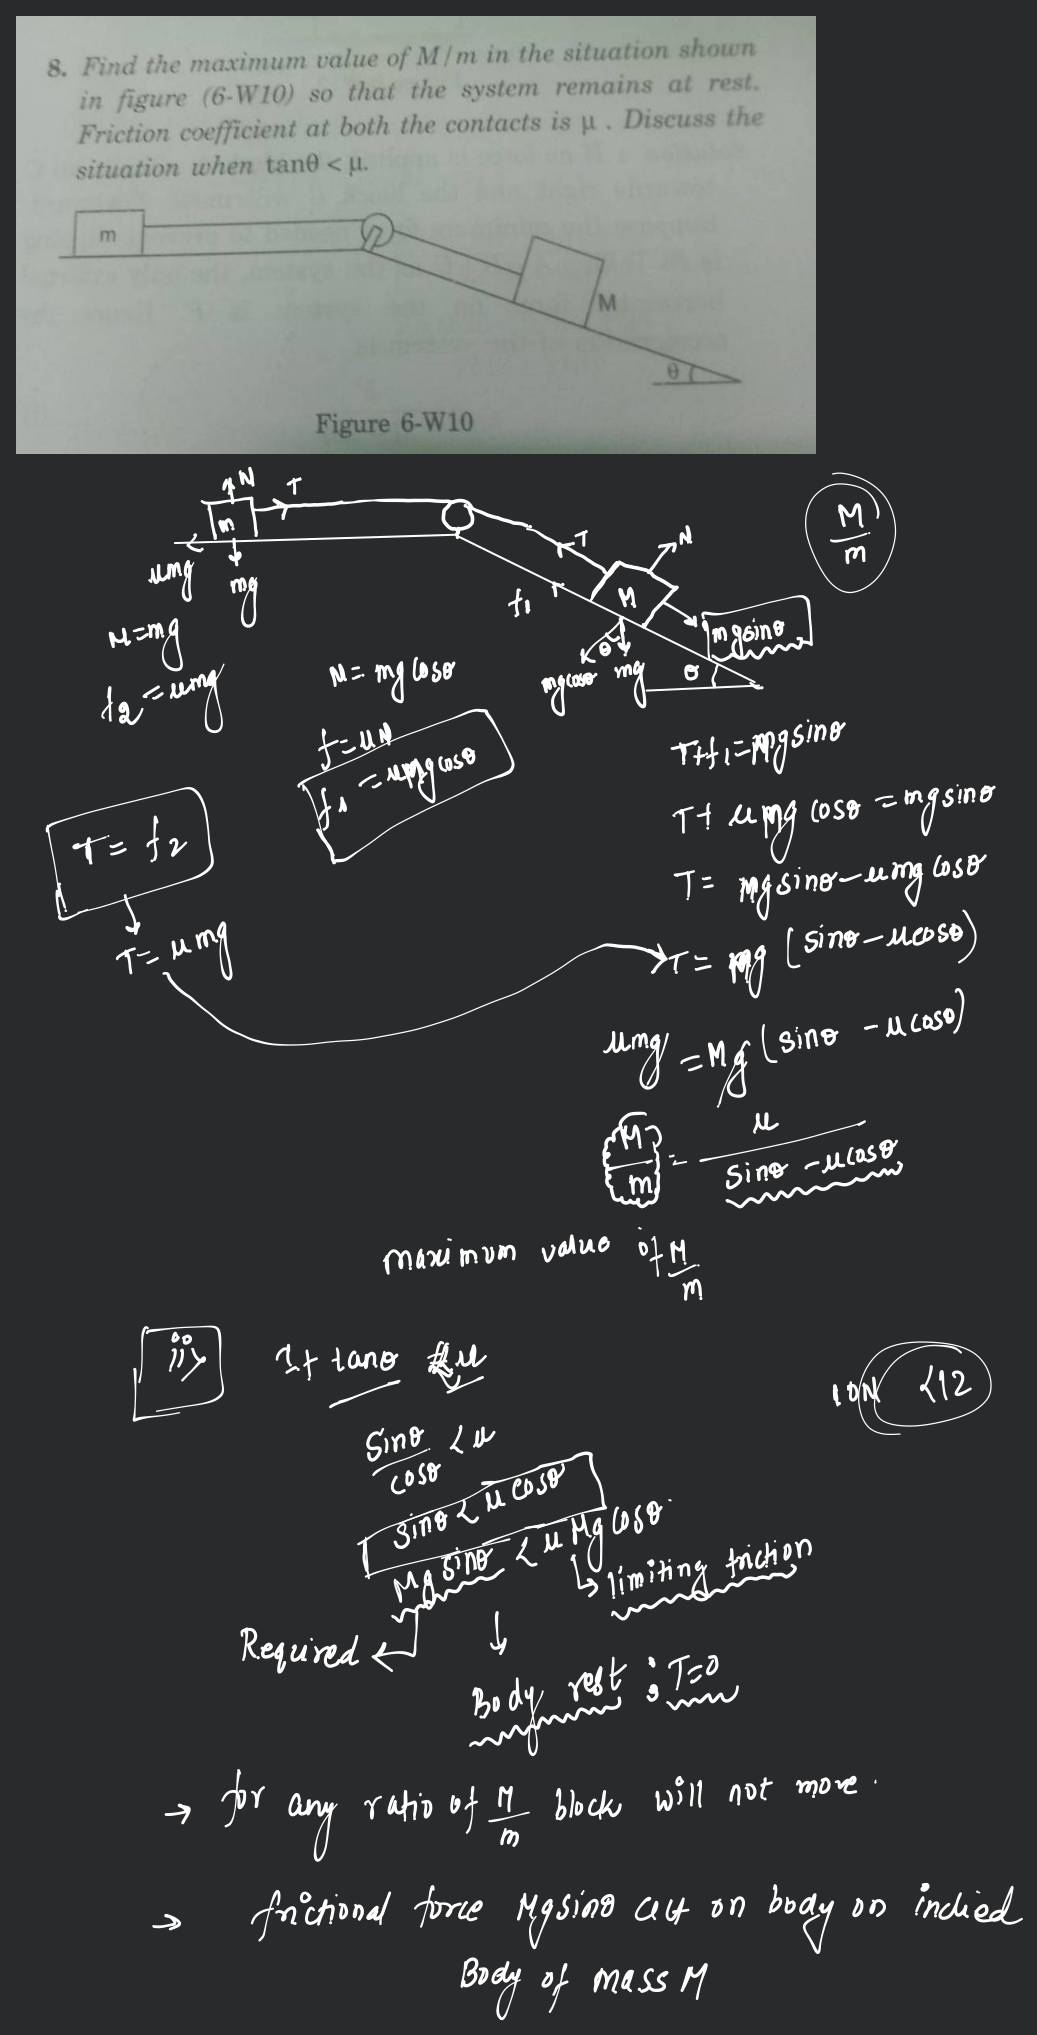 8. Find the maximum value of M/m in the situation shown
in figure (6-W10) so that the system remains at rest.
Friction coefficient at both the contacts is μ . Discuss the
situation when tanθ < μ.
m
M
θ
Figure 6-W10
N
T
m
μmg
mg
T
N
M
f₁
mgsinθ
θ
mgcosθ
mg
θ
M/m
N=mg
f₂=μmg
N= mg cosθ
f=μN
f₁ =μMgcosθ
T= f₂
T= μmg
T+f₁=Mgsinθ
T+ μMg cosθ =mgsinθ
T= Mgsinθ-μmg cosθ
T= Mg (sinθ-μcosθ)
μmg =Mg (sinθ -μcosθ)
M/m = μ/(sinθ -μcosθ)
maximum value of M/m
ii>
If tanθ < μ
10N <12
sinθ/cosθ <μ
sinθ < μ cosθ
Mg sinθ < μ Mg cosθ
limiting friction
Required
Body rest ; T=0
→ for any ratio of M/m block will not move.
→ frictional force Mgsinθ act on body on inclied
Body of mass M